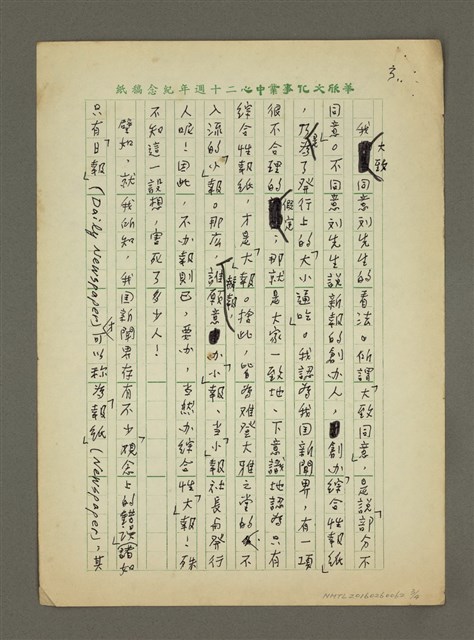 華欣文化事業中心二十週年紀念稿紙
3.
我大致同意刘先生的看法。所謂「大致同意」,是說部分不
同意。不同意刘先生說新報的創办人,創办「綜合性報紙」
,乃為了發行上的「大小通吃」。我認為我国新聞界,有一項
很不合理的假定;那就是大家一致地、下意識地認為只有
綜合性報紙,才是「大」報。捨此,皆為难登大雅之堂的、不
入流的「小」報。那庅,誰願意办「小」報、當「小」報社長與發行
人呢!因此,不办報則已,要办,当然办綜合性「大」報!殊
不知這一設想,害死了多少人!
譬如,就我所知,我国新聞界存有不少覌念上的錯誤。諸如
只有「日報」(Daily Newspaper)才可以称為「報紙」(Newspaper),其
NMTL20160060062